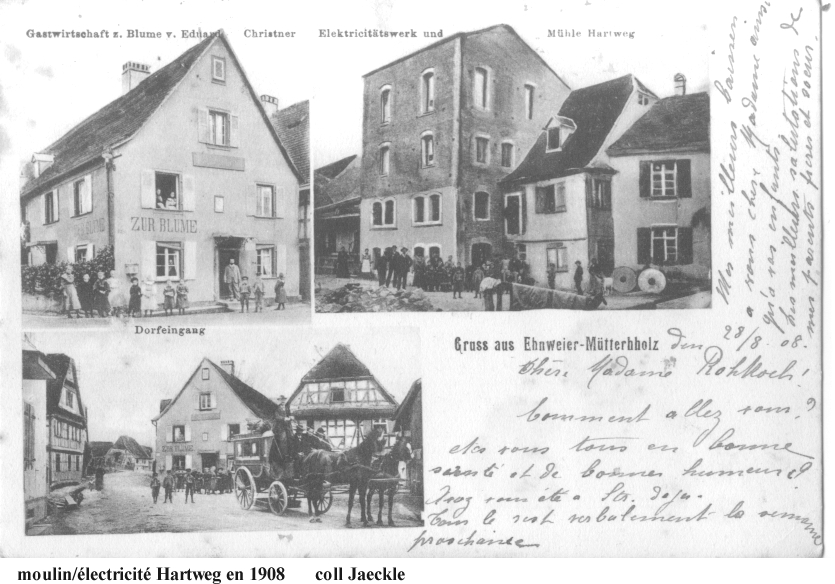 Gastwirtschaft z. Blume v. Eduard Christner
Elektricitätswerk und Mühle Hartweg
ZUR BLUME
ZUR BLUME
Dorfeingang
ZUR BLUME
Gruss aus Ehnweier-Mütterhholz den 28/8 08.
Chère Madame Rohkoch!
Comment allez vous?
etes vous tous en bonne
santé et de bonne humeur?
Avez vous été a Str. deja.
Tous le rest verbalement la semaine
prochaine
Mes meilleurs baisers
a vous chere Madame ainsi
qu'a ses enfants
les meilleures salutations de
mes parents frères et soeur.
moulin/électricité Hartweg en 1908 coll Jaeckle